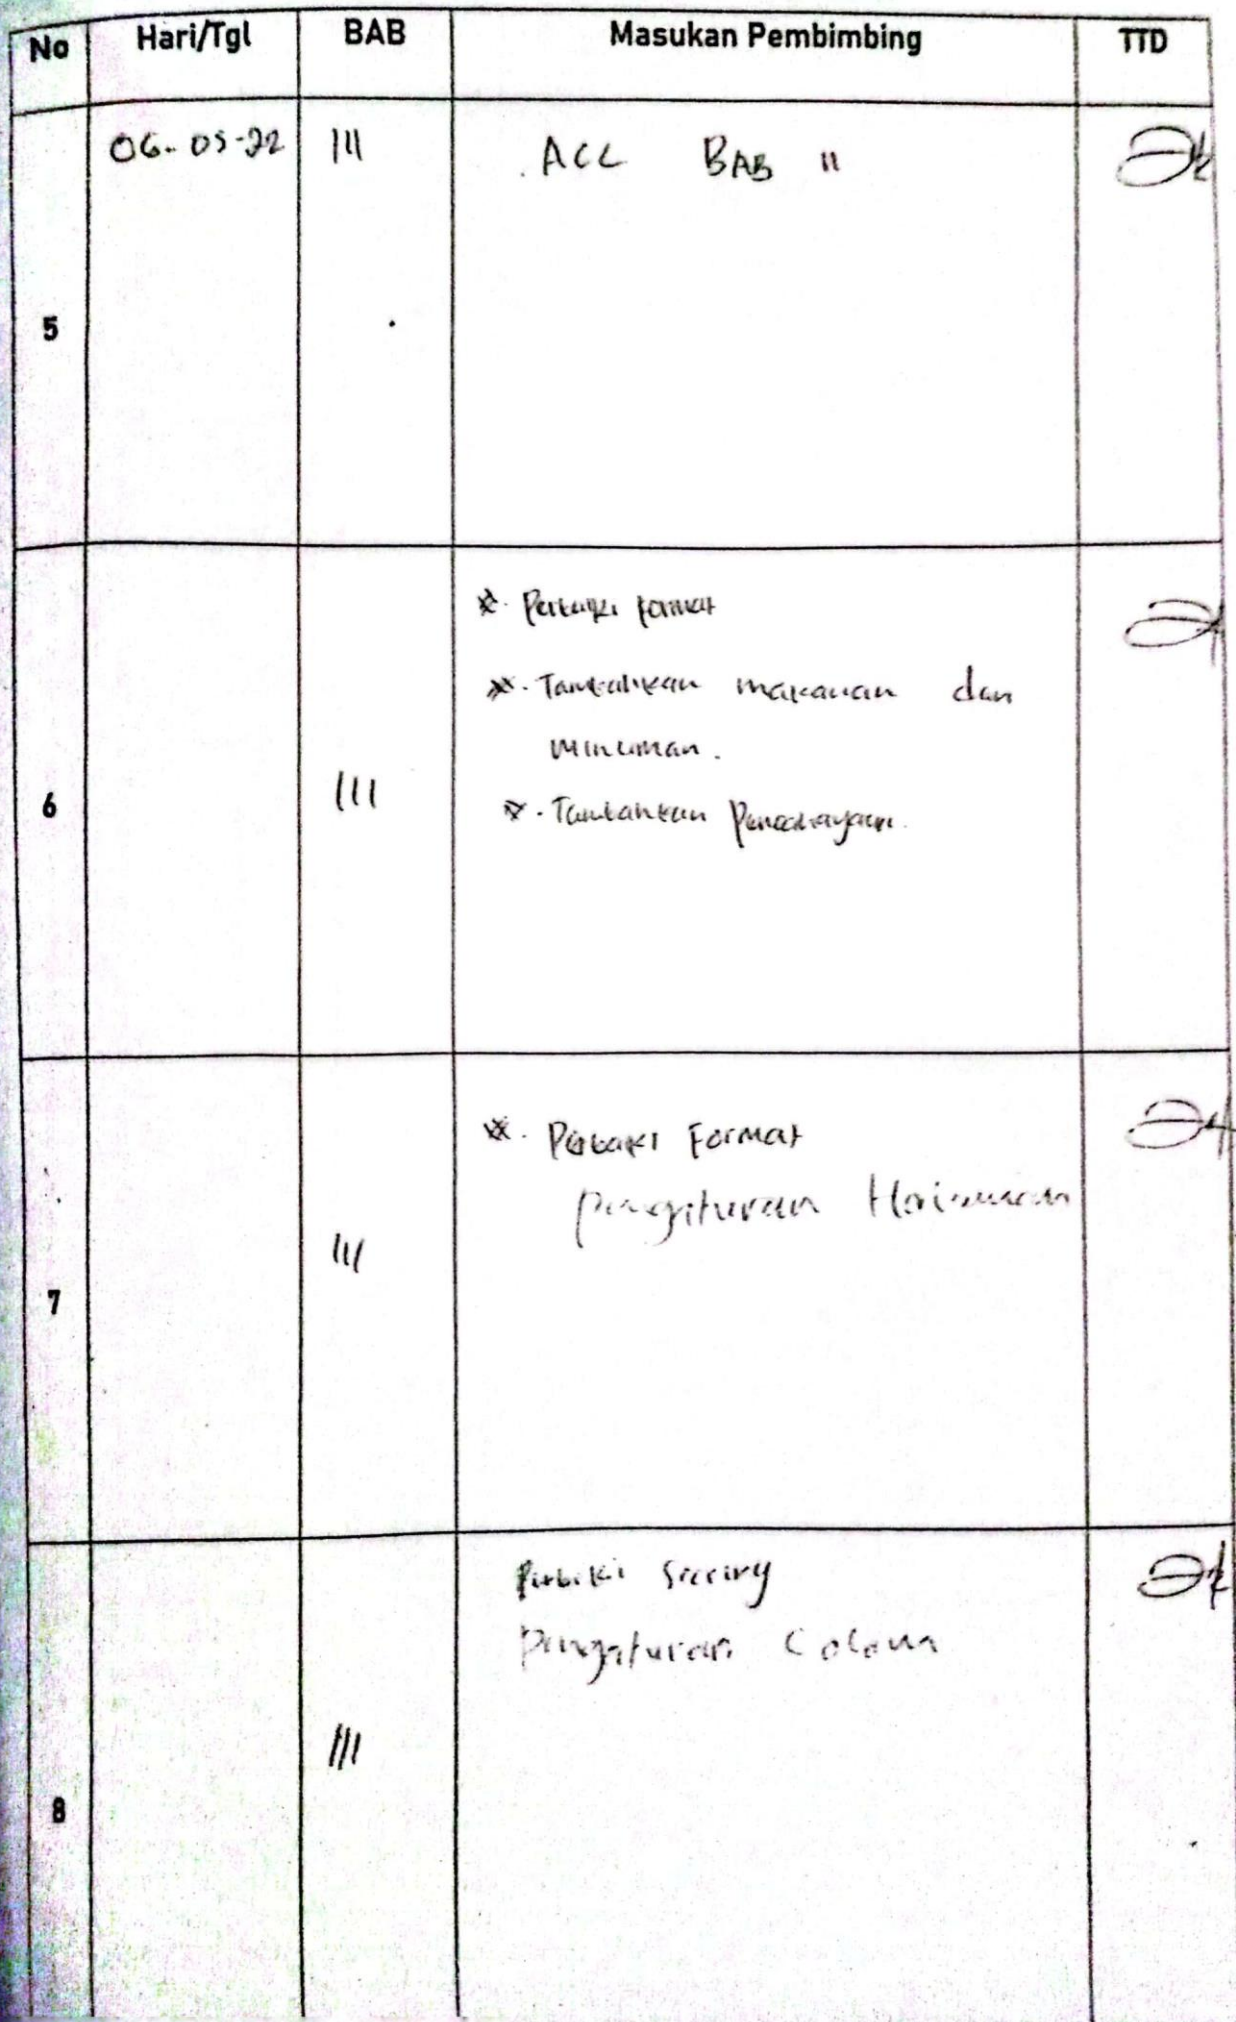 No Hari/Tgl BAB Masukan Pembimbing TTD
5 06-05-22 III ACC BAB II
6 III
Perbaiki format
Tambahkan makanan dan
minuman.
Tambahkan Pencahayaan.
7 III
Perbaiki Format
pengaturan
8 III
Perbiki
pengaturan